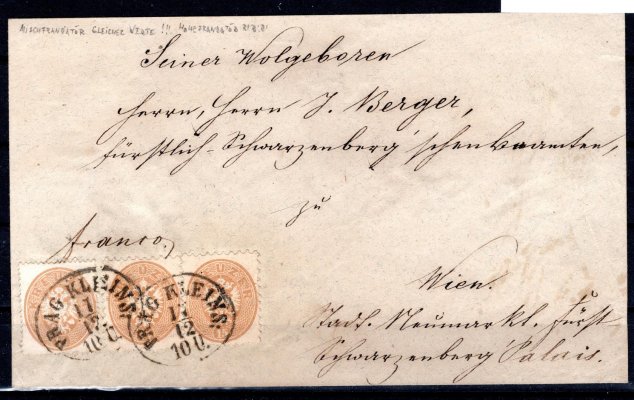 MISCHFRANKATUR GLEICHER WERTE !!
Seiner Wolgeboren
Herrn, Herrn J. Berger,
fürstlich-Schwarzenberg'schen Beamten,
zu
franco.
Wien.
Stadt. Neumarkt. Fürst
Schwarzenberg Palais.
PRAG KLEINS.
11
12
10 U.
PRAG KLEINS.
11
12
10 U.